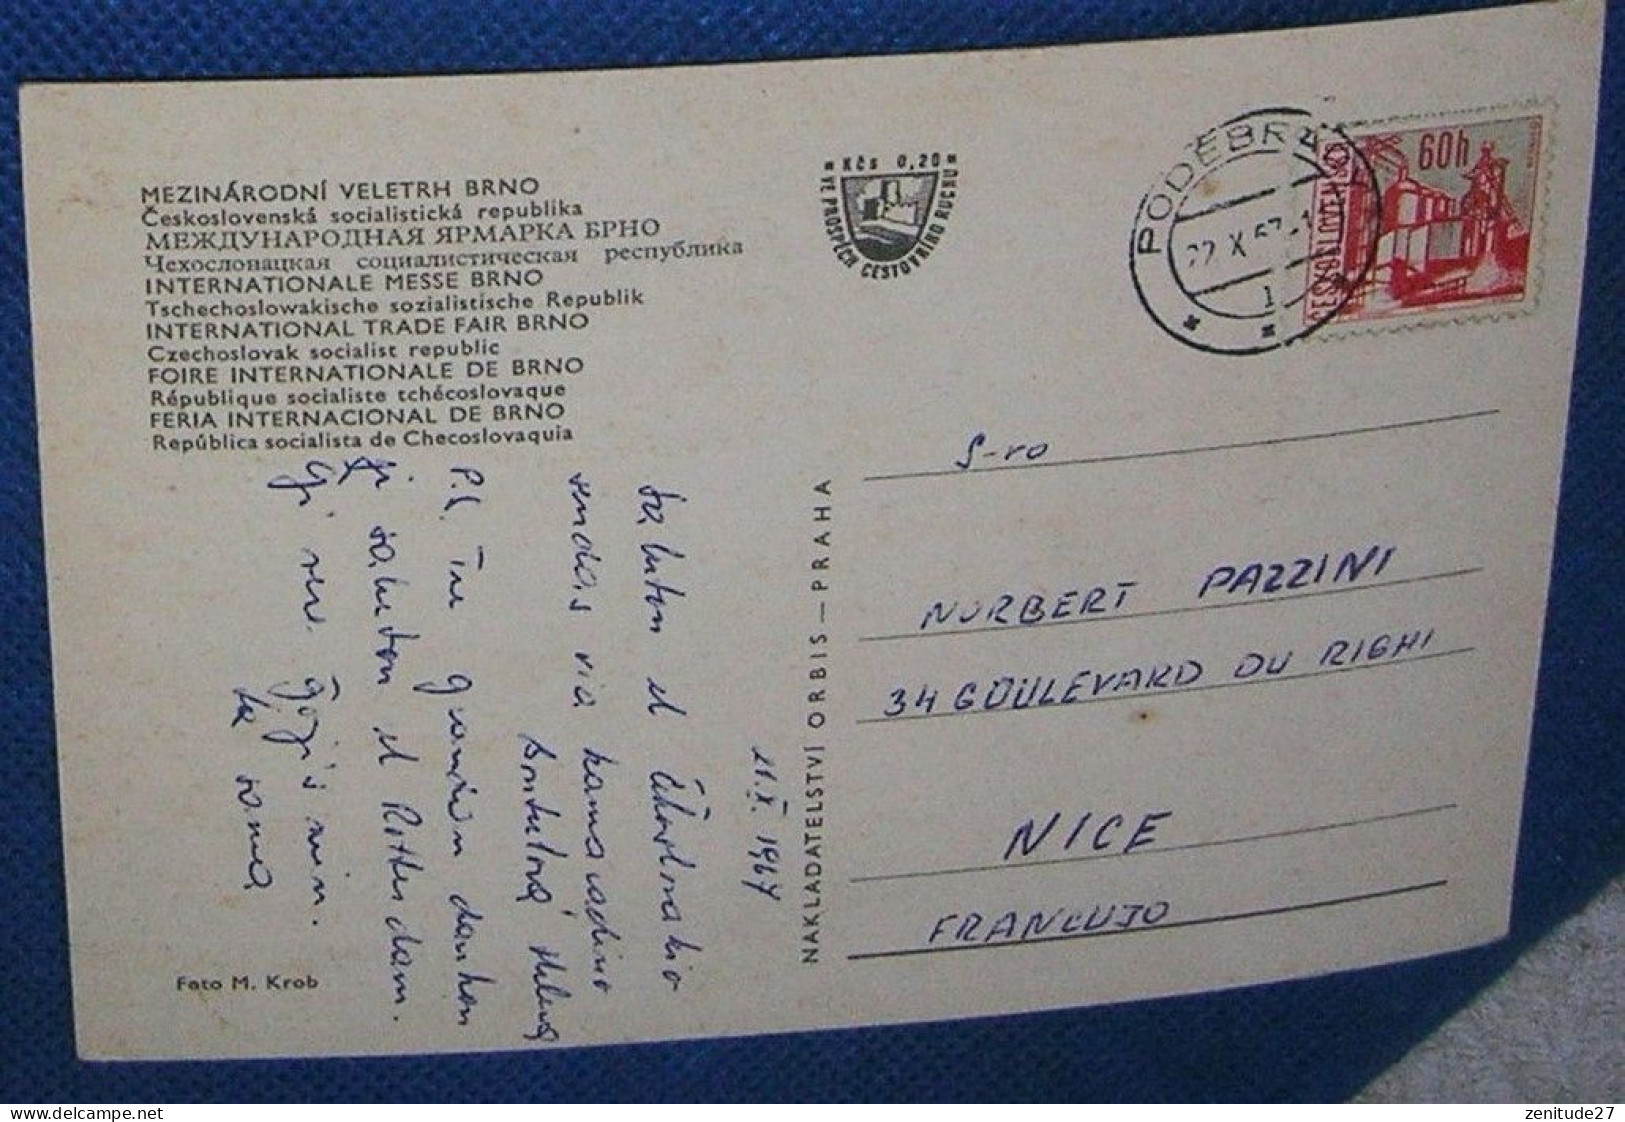 MEZINÁRODNÍ VELETRH BRNO
Československá socialistická republika
МЕЖДУНАРОДНАЯ ЯРМАРКА БРНО
Чехословацкая социалистическая республика
INTERNATIONALE MESSE BRNO
Tschechoslowakische sozialistische Republik
INTERNATIONAL TRADE FAIR BRNO
Czechoslovak socialist republic
FOIRE INTERNATIONALE DE BRNO
République socialiste tchécoslovaque
FERIA INTERNACIONAL DE BRNO
República socialista de Checoslovaquia
Kčs 0,20
VE PROSPĚCH CESTOVNÍHO RUCHU
PODĚBRADY
22 X 67
1
60h
ČESKOSLOVENSKO
21.X.1967
Saluton el
sendas via kamaradino
Helena
P.S.
dankon
saluton el Rotterdam.
la sama
Foto M. Krob
NAKLADATELSTVÍ ORBIS — PRAHA
S-ro
NORBERT PAZZINI
34 BOULEVARD DU RIGHI
NICE
FRANCUJO
zenitude27